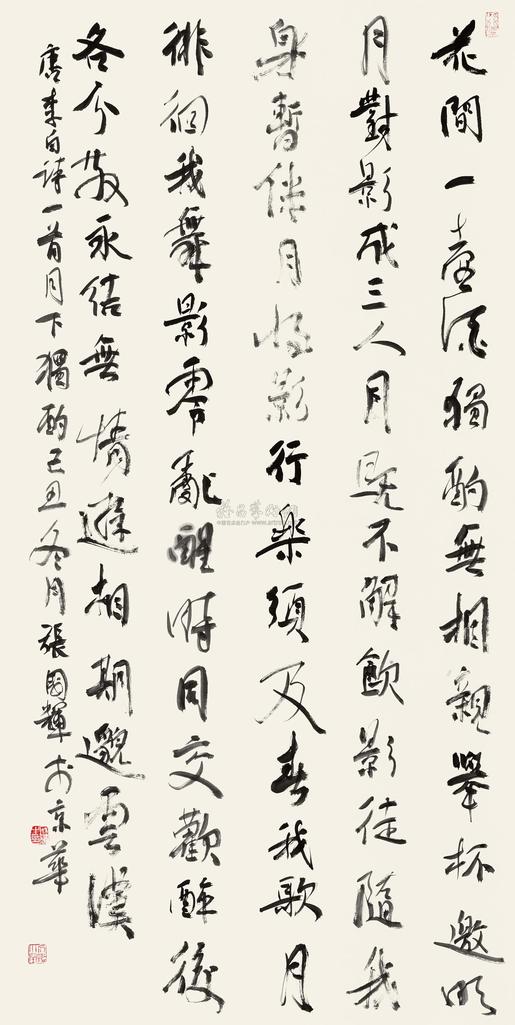 花間一壺酒獨酌無相親舉杯邀明
月對影成三人月既不解飲影徒隨我
身暫伴月將影行樂須及春我歌月
徘徊我舞影零亂醒時同交歡醉後
各分散永結無情遊相期邈雲漢
唐李白詩一首月下獨酌己丑冬月張國輝於京華